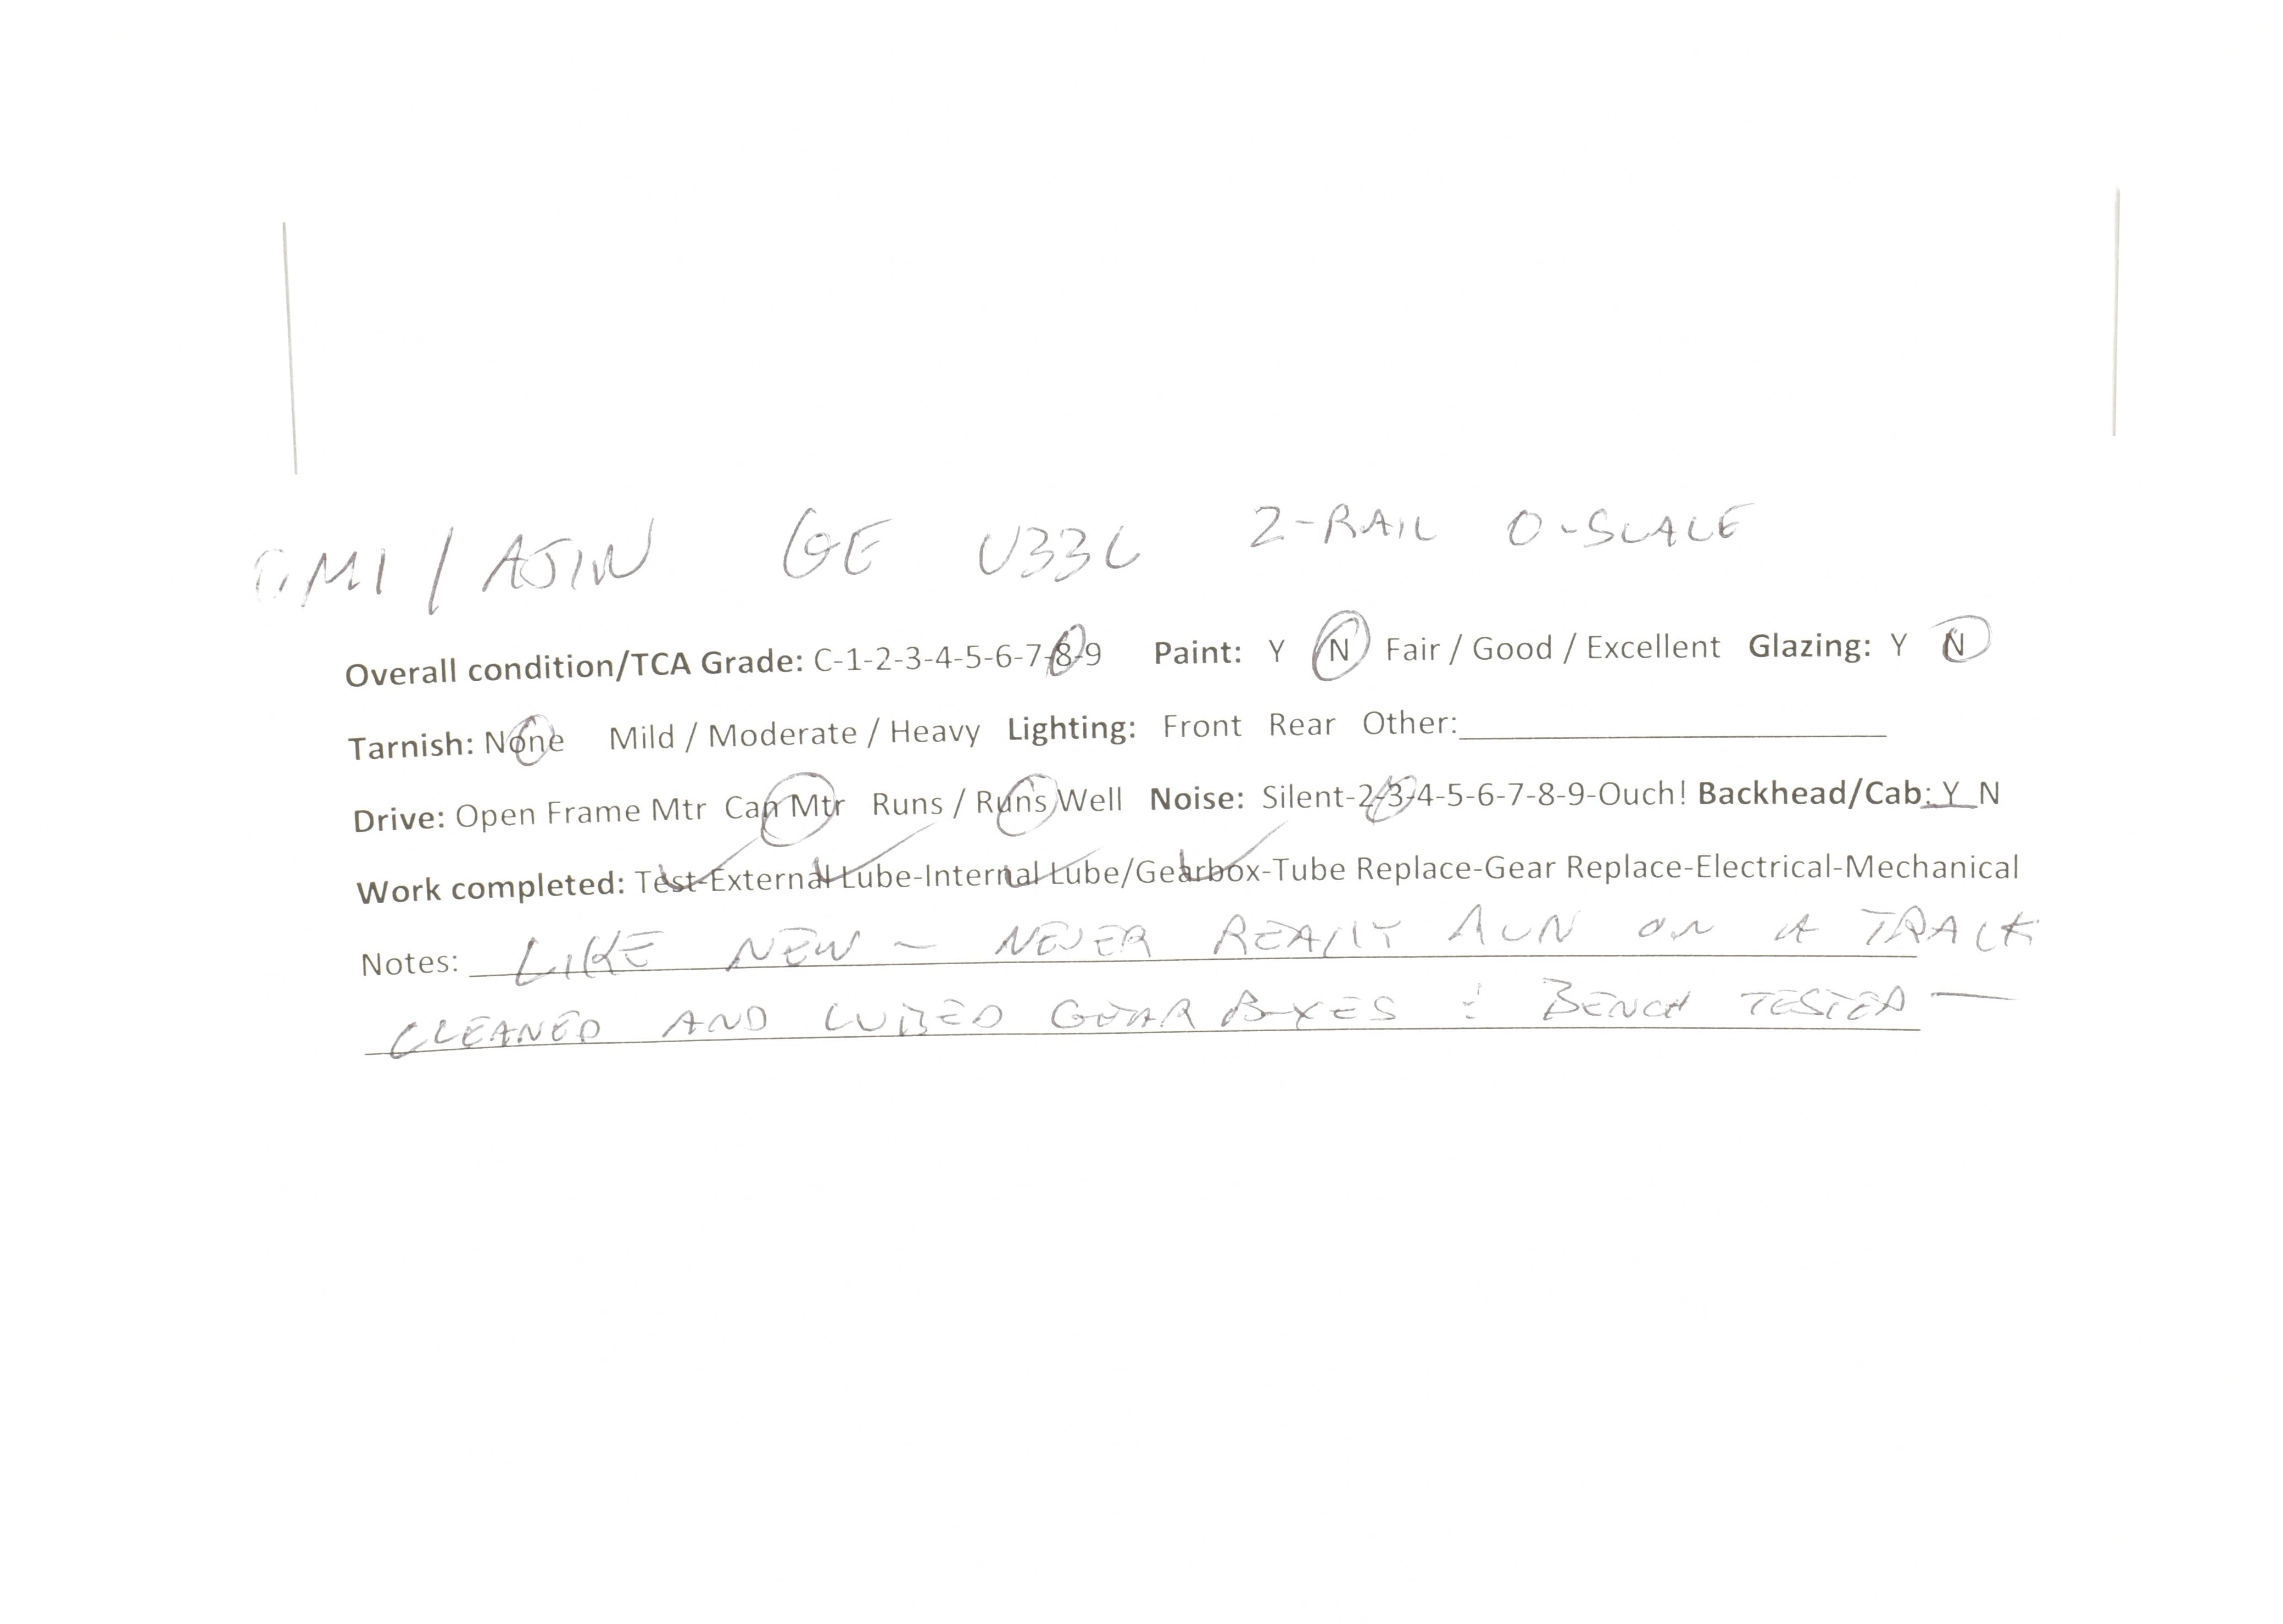 OMI / AJIN GE U33C 2-RAIL O-SCALE
Overall condition/TCA Grade: C-1-2-3-4-5-6-7-8-9 Paint: Y N Fair / Good / Excellent Glazing: Y N
Tarnish: None Mild / Moderate / Heavy Lighting: Front Rear Other:
Drive: Open Frame Mtr Can Mtr Runs / Runs Well Noise: Silent-2-3-4-5-6-7-8-9-Ouch! Backhead/Cab: Y N
Work completed: Test-External Lube-Internal Lube/Gearbox-Tube Replace-Gear Replace-Electrical-Mechanical
Notes: LIKE NEW - NEVER REALLY RUN ON A TRACK
CLEANED AND LUBED GEAR BOXES & BENCH TESTED -